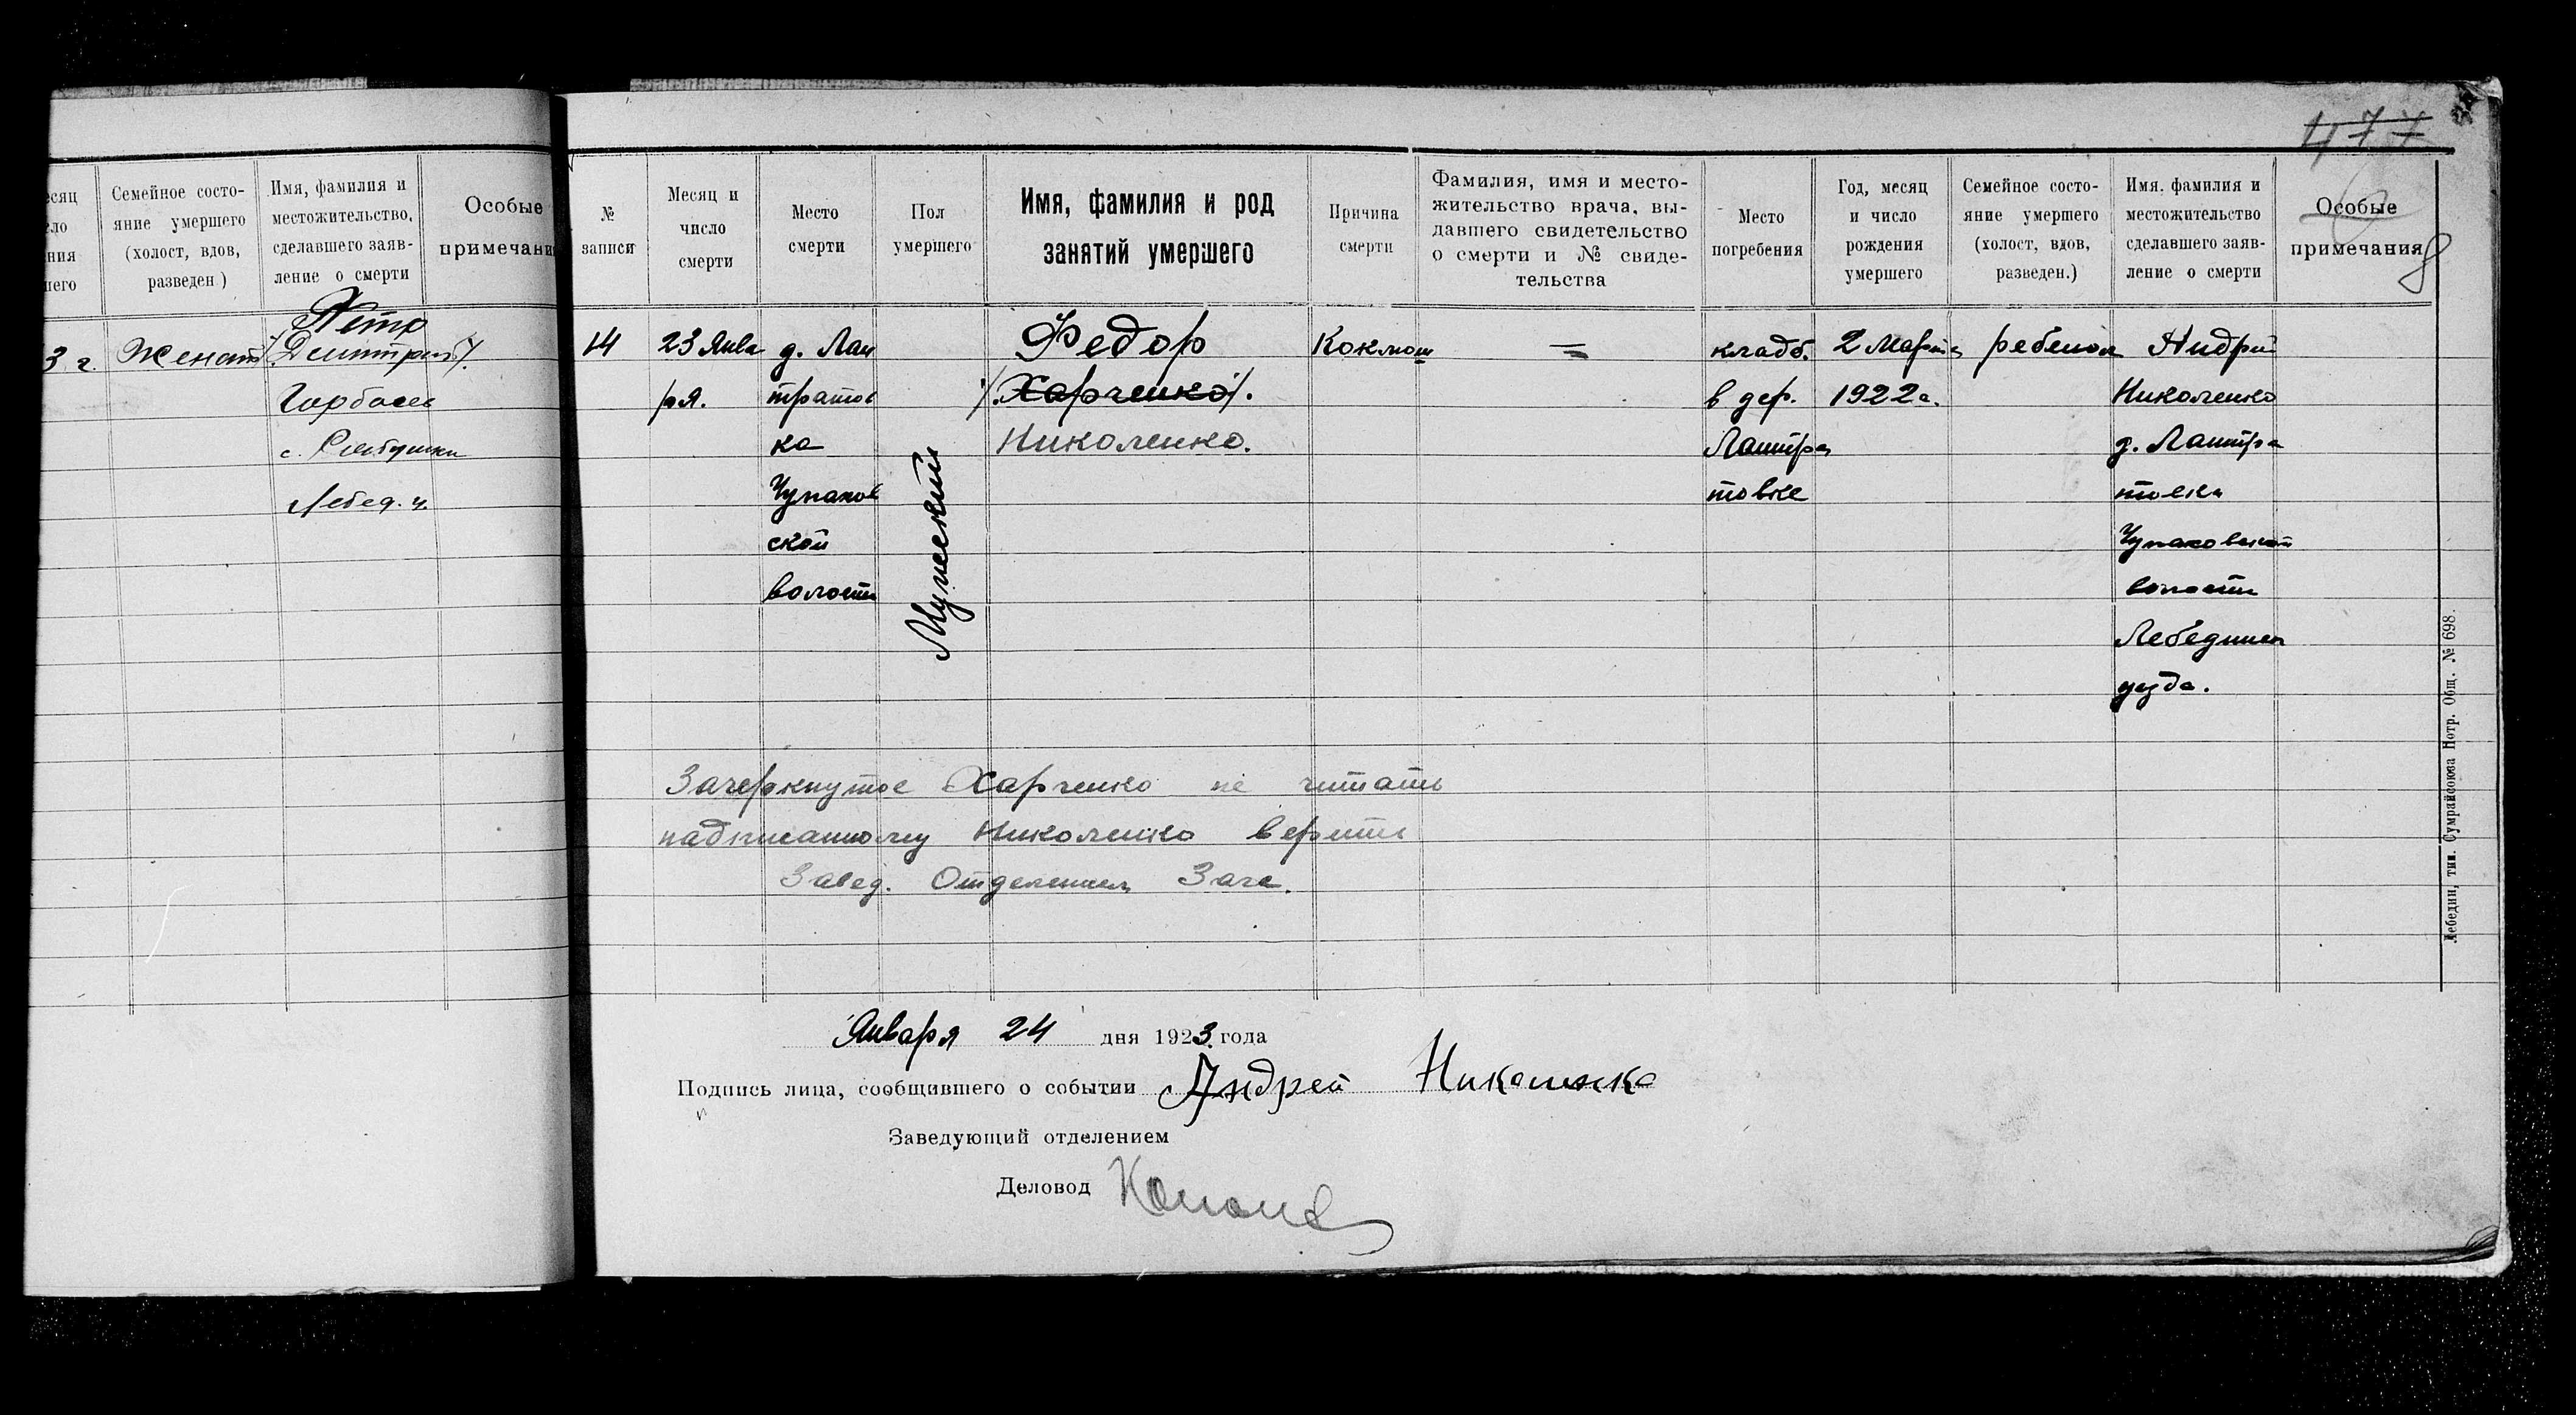 477
есяц
сло
ния
шего
Семейное состо-
яние умершего
(холост, вдов,
разведен.)
Имя, фамилия и
местожительство,
сделавшего заяв-
ление о смерти
Особые
примечани
3 г.
Женат
Петр
Дмитрий
Горбасев
с.
Лебед. у.
№
записи
Месяц и
число
смерти
Место
смерти
Пол
умершего
Имя, фамилия и род
занятий умершего
Причина
смерти
Фамилия, имя и место-
жительство врача, вы-
давшего свидетельство
о смерти и № свиде-
тельства
Место
погребения
Год, месяц
и число
рождения
умершего
Семейное состо-
яние умершего
(холост, вдов,
разведен.)
Имя, фамилия и
местожительство
сделавшего заяв-
ление о смерти
Особые
примечания
8
14
23 Янва
ря.
д. Лан
тратов
ка
Чупахов
ской
волости
Мужеский
Федор
Харченко
Николенко.
Коклюш
=
кладб.
в дер.
Лантра
товке
2 Марта
1922 г.
ребенок
Андрей
Николенко
д. Лантра
товки
Чупаховской
волости
Лебединск
уезда.
Зачеркнутое Харченко не читать
надписанному Николенко верить
Завед. Отделением Загс.
Января 24 дня 1923 года
Подпись лица, сообщившего о событии Андрей Николенко
Заведующий отделением
Деловод
Лебедин, тип. Сумрайсоюза Потр. Общ. № 698.